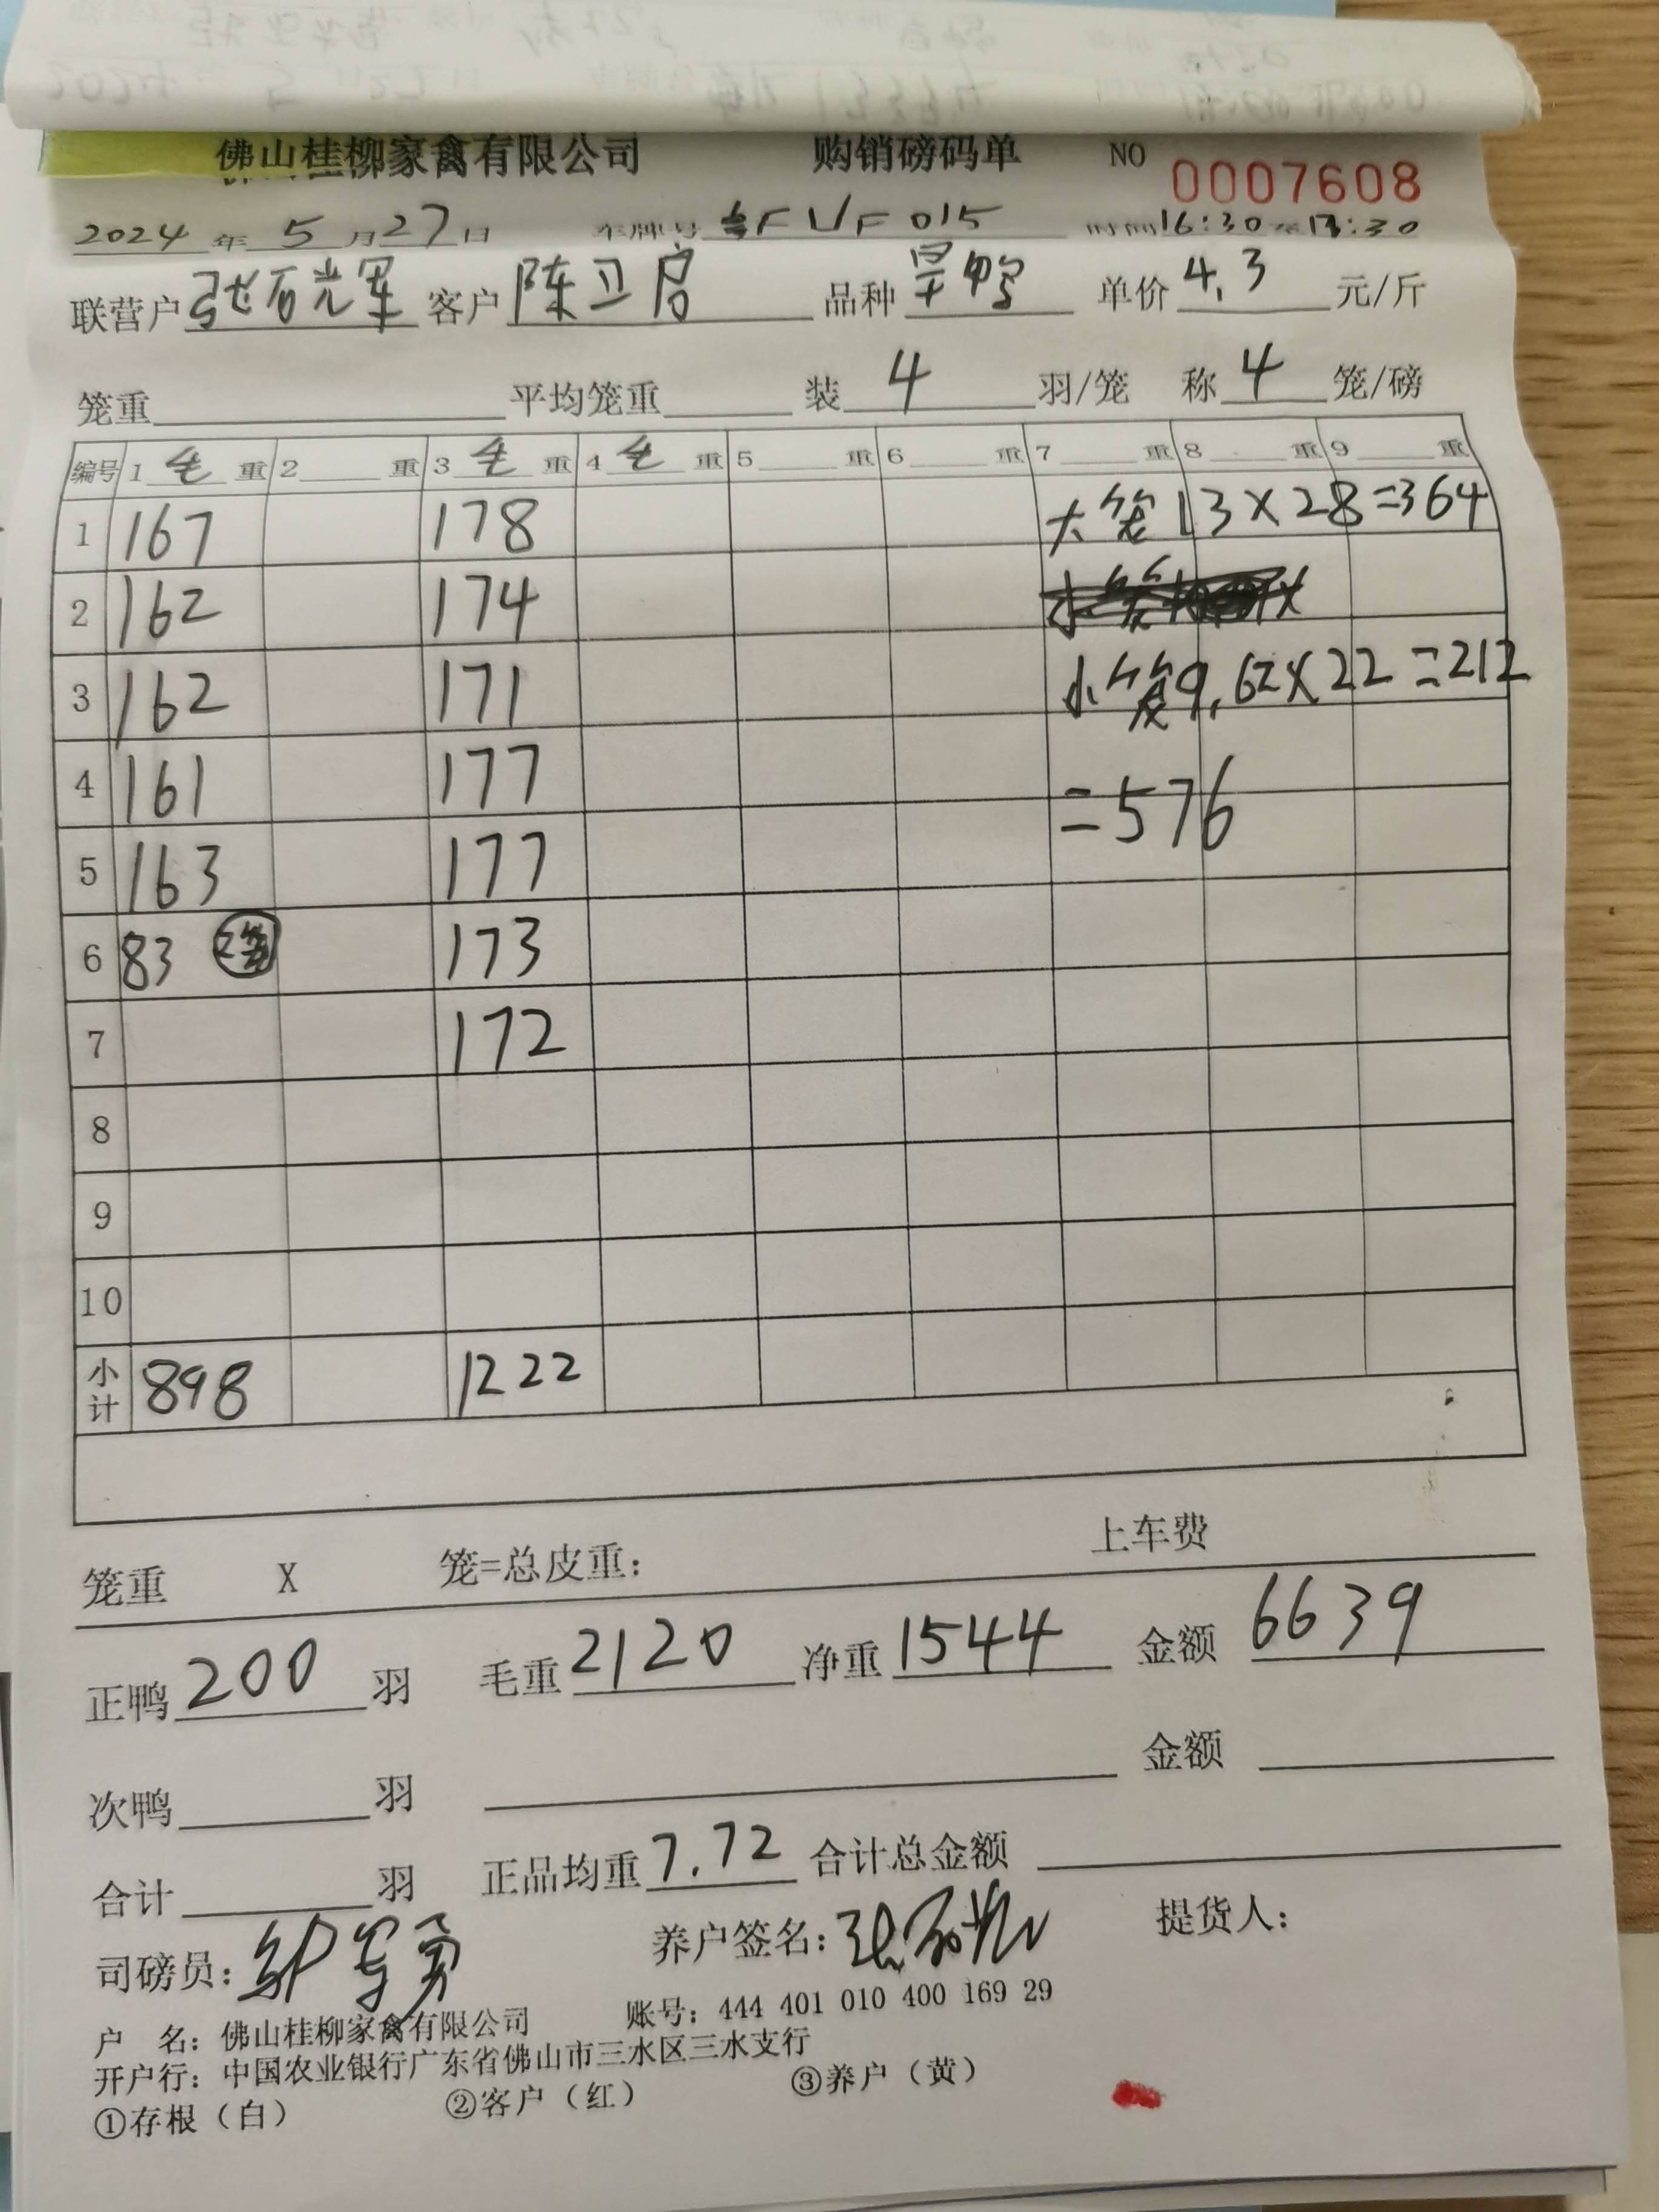 佛山桂柳家禽有限公司 购销磅码单 NO 0007608
2024年5月27日 车牌号 FVF015 时间16:30至17:30
联营户 张石光军 客户 陈卫启 品种 旱鸭 单价4.3元/斤
笼重 平均笼重 装4羽/笼 称4笼/磅
编号 1毛重 2重 3毛重 4毛重 5重 6重 7重 8重 9重
1 167 178 大笼13×28=364
2 162 174
3 162 171 小笼9.62×22=212
4 161 177 =576
5 163 177
6 83 173
7 172
8
9
10
小计 898 1222
笼重 X 笼=总皮重: 上车费
正鸭200羽 毛重2120 净重1544 金额6639
次鸭 羽 金额
合计 羽 正品均重7.72 合计总金额
司磅员: 养户签名: 提货人:
户 名:佛山桂柳家禽有限公司 账号:444 401 010 400 169 29
开户行:中国农业银行广东省佛山市三水区三水支行
①存根(白) ②客户(红) ③养户(黄)